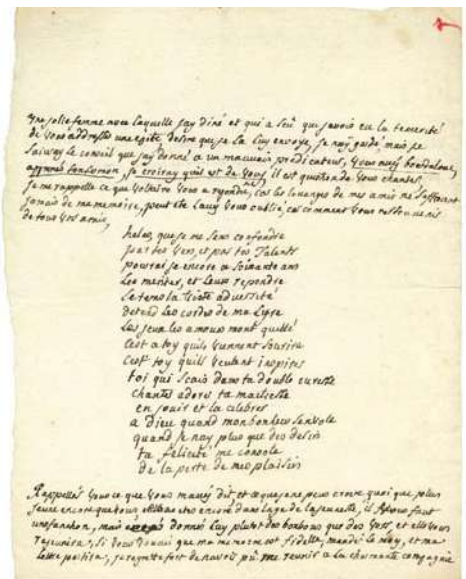 une jolie femme avec laquelle jay diné et qui a scû que javois eu la temerité
de vous addresser une epitre desire que je la luy envoye, je nay garde mais je
suivray le conseil que jay donné a un mauvais predicateur,
il est question de vous chanter,
je me rappelle ce que voltaire vous a repondu, car les louanges de mes amis ne seffacent
jamais de ma memoire, peut etre lavez vous oublié, car comment vous ressouvenir
de tous vos
helas que je me sens confondre
par tes vers, et par tes talents
pourrai je encore a soixante ans
les meriter, et leur repondre
le tems la triste adversité
detend les cordes de ma lyre
les jeux les amours mont quitté
cest a toy quils viennent sourire
cest toy quils veulent inspirer
toi qui scais dans ta double
chanter adorer ta maitresse
en jouir et la celebrer
a dieu quand mon bonheur senvole
quand je nay plus que des desirs
ta felicité me console
de la perte de mes plaisirs
Rappellés vous ce que vous mavez dit, et ce que je ne peux croire quoi que plus
jeune encore que vous
mais donnés luy plutot des bonbons que des vers, et elle vous
rajeunira, si vous trouvés que ma memoire est fidelle, mandés le moy, et ma
lettre partira, je regrette fort de navoir pû me reunir a la charmante compagnie